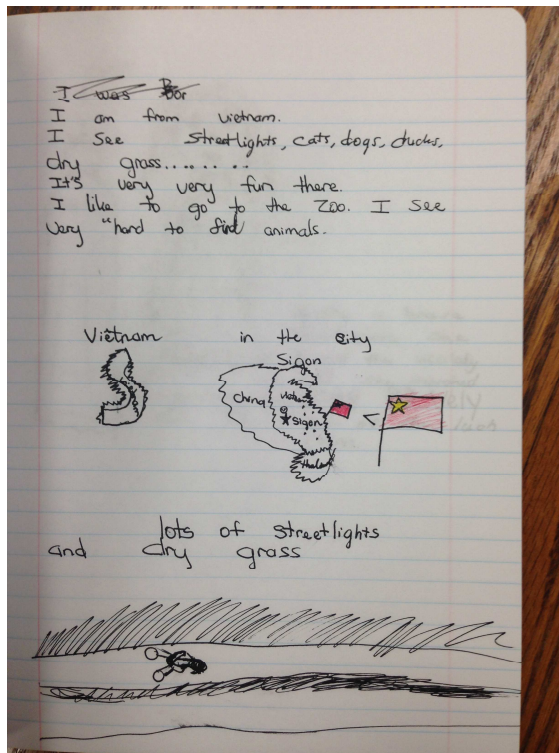 I was Bor
I am from vietnam.
I See streetlights, cats, dogs, ducks,
dry grass........
It's very very fun there.
I like to go to the zoo. I see
very "hard to find animals.
Vietnam
in the city
Sigon
china
Sigon
lots of streetlights
and dry grass